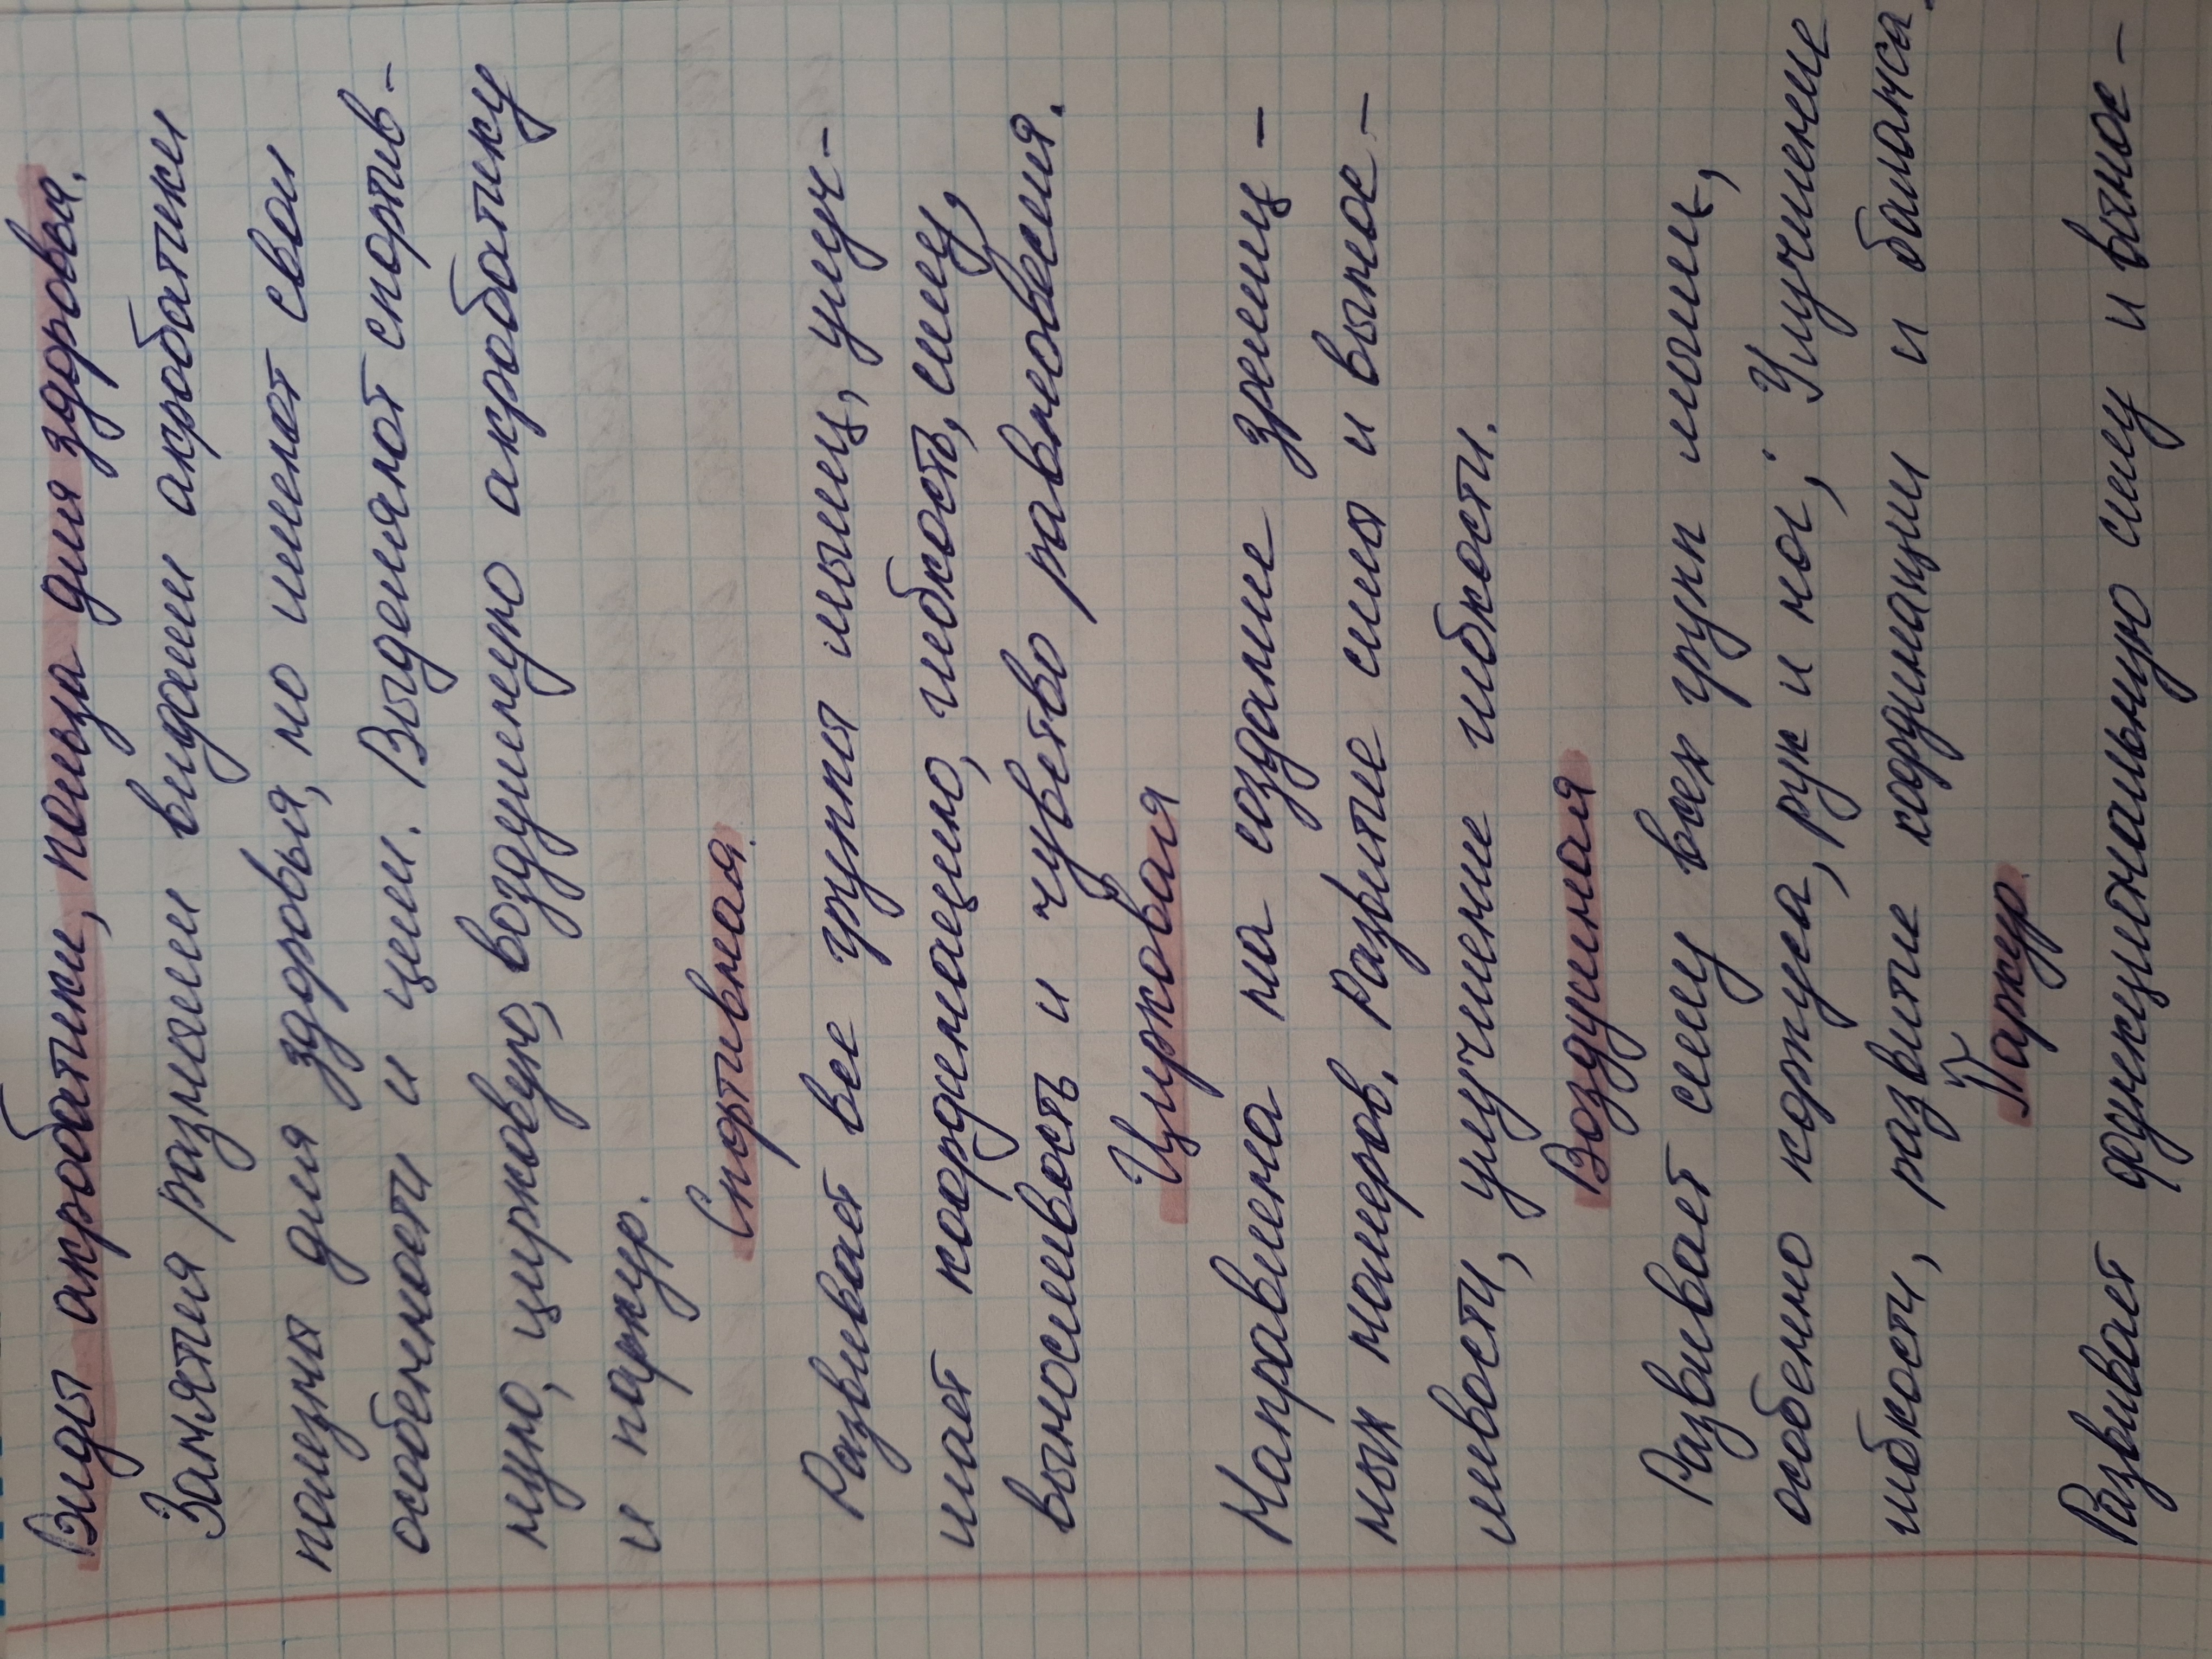 Виды акробатики, польза для здоровья.
Занятия разными видами акробатики
полезны для здоровья, но имеют свои
особенности и цели. Выделяют спортив-
ную, цирковую, воздушную акробатику
и паркур.
Спортивная.
Развивает все группы мышц, улуч-
шает кордженацию, гибкость, силу,
выносливость и чувство равновесия.
Цирковая
Направлена на создание зрелищ-
ных номеров. Развитие силы и вынос-
ливости, улучшение гибкости.
Воздушная
Развивает силу всех групп мышц,
особенно корпуса, рук и ног; Улучшение
гибкости, развитие кординации и баланса.
Паркур.
Развивает функциональную силу и вынос-